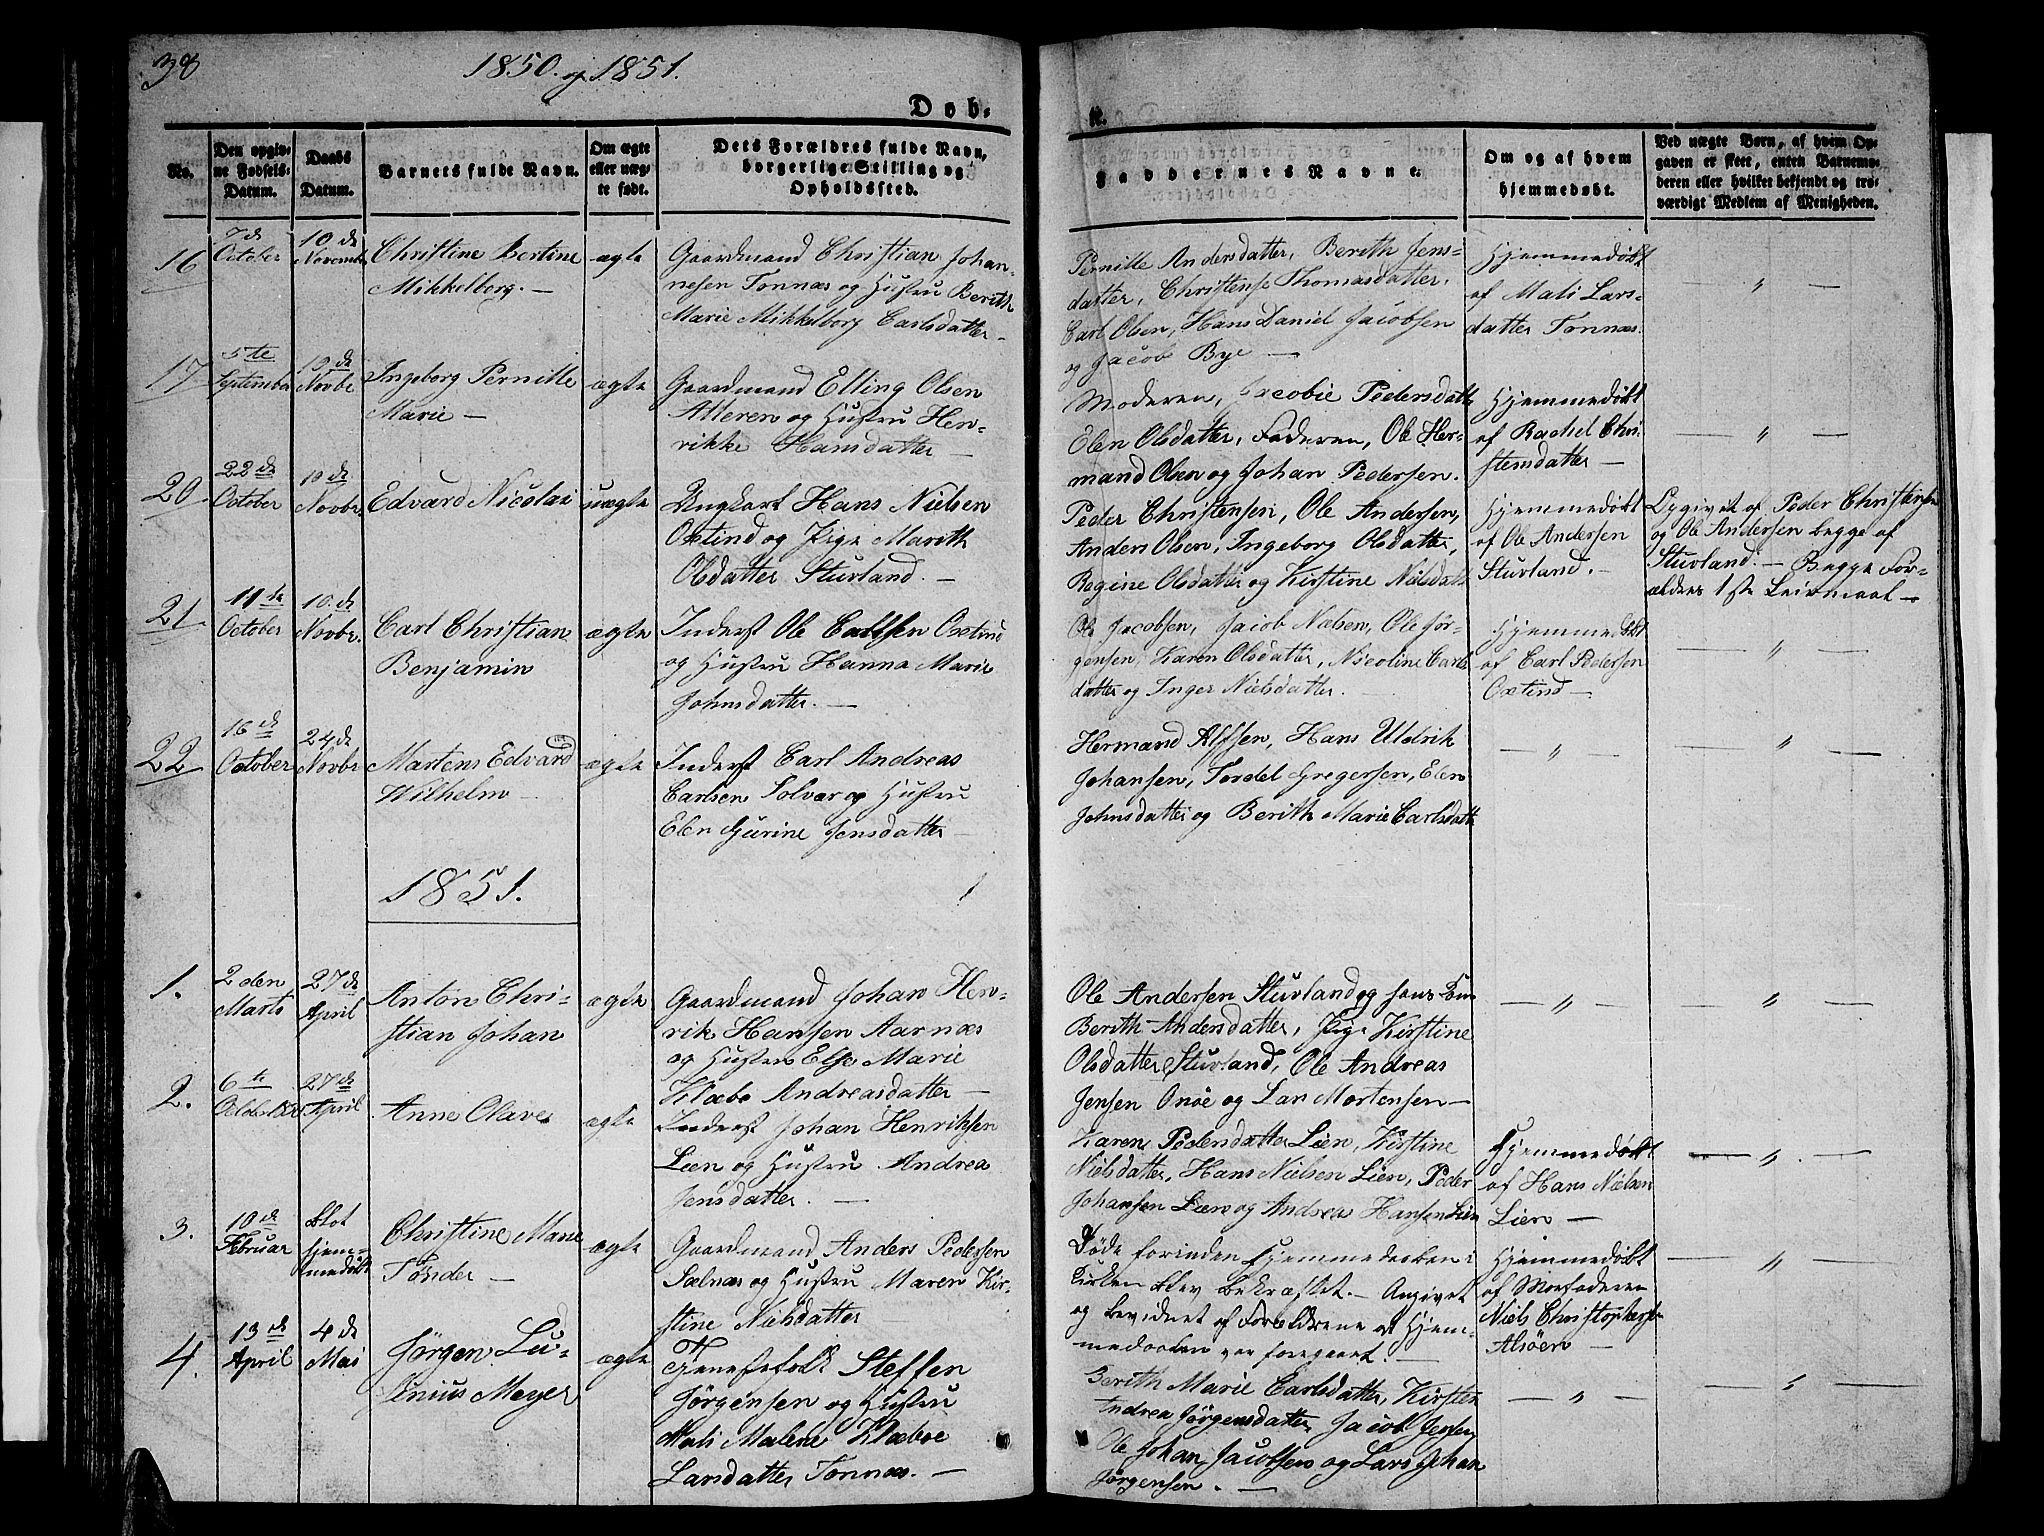 38
1850. og 1851.
Dob-
No.
Den opgiv-
ne Fødsels-
Datum.
Daabs
Datum.
Barnets fulde Navn.
Om ægte
eller uæg-
te født.
Dets Forældres fulde Navn,
borgerlige Stilling og
Opholdssted.
16
7de
October
10de
November
Christine Bertine
Mikkelborg. —
ægte
Gaardmand Christian Johan-
nesen Tonnæs og Hustru Berith
Marie Mikkelborg Carlsdatter —
17
5te
September
10de
Novbr
Ingeborg Pernille
Marie —
ægte
Gaardmand Elling Olsen
Alteren og Hustru Hen-
rikke Hansdatter —
20
22de
October
10de
Novbr.
Edvard Nicolai
uægte
Ungkarl Hans Nielsen
Oxtind og Pige Marith
Olsdatter Stuvland. —
21.
11te
October
10.de
Novbr.
Carl Christian
Benjamin
ægte
Inderst Ole Carlsen Oxtind
og Hustru Hanna Marie
Johnsdatter. —
22
16de
October
24de
Novbr
Martens Edvard
Wilhelm —
ægte
Inderst Carl Andreas
Carlsen Solvær og Hustru
Elen Gurine Jensdatter —
1851.
1.
2den
Marts
27de
April
Anton Chri-
stian Johan
ægte
Gaardmand Johan Hen-
rik Hansen Aarnæs
og Hustru Else Marie
Klæbo Andreasdatter —
2.
6te
October
27de
April
Anne Olave
ægte
Inderst Johan Henriksen
Lien og Hustru Andrea
Jensdatter. —
3.
10de
Februar
blot
hjem-
medøbt
Christine Marie
Tønder —
ægte
Gaardmand Anders Pedersen
Sælnæs og Hustru Maren Kir-
stine Nielsdatter
4.
13de
April
4de
Mai
Jørgen Lu-
Junius Meyer
ægte
Steffen
Jørgensen og Hustru
Mali Malene Klæboe
Larsdatter Tonnæs. —
te.
Faddernes Navne.
Om og af hvem
hjemmedøbt.
Ved uægte Børn, af hvem Op-
gaven er skeet, enten Barnemo-
deren eller hvilket bekjendt og tro-
værdigt Medlem af Menigheden.
Pernille Andersdatter, Berith Jens-
datter, Christense Thomasdatter,
Carl Olsen, Hans Daniel Jacobsen
og Jacob Bye —
Hjemmedøbt
af Mali Lars-
datter Tonnæs.
— " —
Moderen, Jacobie Pedersdatter
Elen Olsdatter, Faderen, Ole Her-
mand Olsen og Johan Pedersen.
Hjemmedøbt
af Rachel Chri-
stensdatter —
— " —
Peder Christensen, Ole Andersen,
Anders Olsen, Ingeborg Olsdatter,
Regine Olsdatter og Kirstine Nielsdatt
Hjemmedøbt
af Ole Andersen
Stuvland. —
Opgivet af Peder Christensen
og Ole Andersen begge af
Stuvland. — Begge For-
ældres 1ste Leiermaal —
Ole Jacobsen, Jacob Nielsen, Ole Jør-
gensen, Karen Olsdatter, Nicoline Carls
datter og Inger Nielsdatter. —
Hjemmedøbt
af Carl Pedersen
Oxtind —
— " —
Hermand Alfsen, Hans Uldrik
Johansen, Tordel Gregersen, Elen
Johnsdatter og Berith Marie Carlsdatt
— " —
"
Ole Andersen Stuvland og hans Kone
Berith Andersdatter, Pige Kirstine
Olsdatter Stuvland, Ole Andreas
Jensen Onøe og Lars Mortensen —
— " —
— " —
Karen Pedersdatter Lien, Kirstine
Nielsdatter, Hans Nielsen Lien, Peder
Johansen Lien og Andrea Hansen Lien
Hjemmedøbt
af Hans Nielsen
Lien —
— " —
Døde forinden Hjemmedaaben i
Kirken blev bekræftet. — Angivet
og bevidnet af Forældrene at Hjem-
medaaben var foregaaet. —
Hjemmedøbt
af Morfaderen
Niels Christophersen
Alsøen —
— " —
Berith Marie Carlsdatter, Kirsten
Andrea Jørgensdatter, Jacob Jensen
Ole Johan Jacobsen og Lars Johan
Jørgensen. —
— " —
— " —